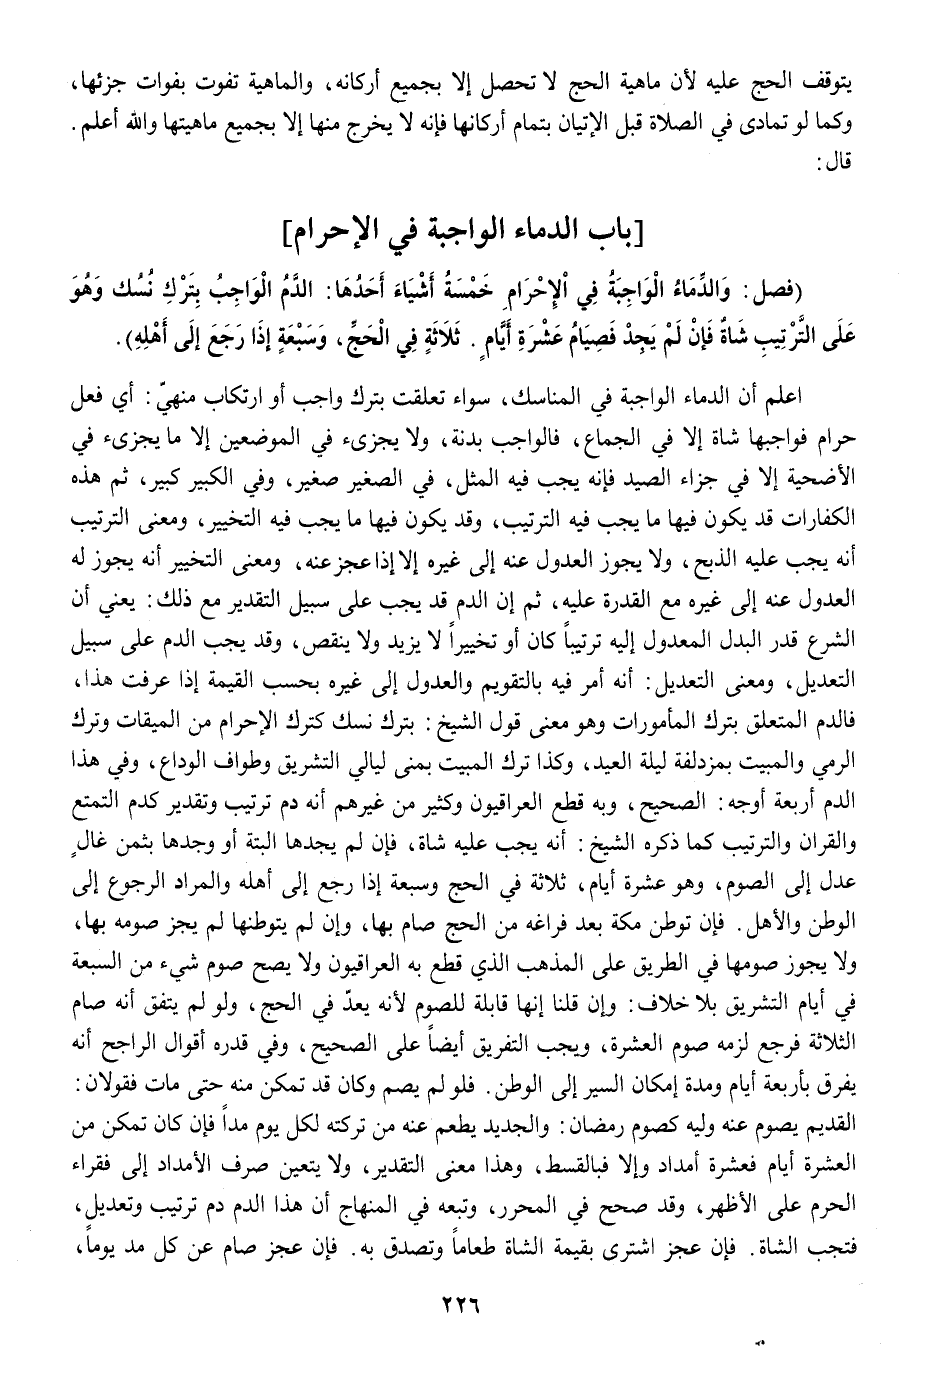 يتوقف الحج عليه لأن ماهية الحج لا تحصل إلا بجميع أركانه، والماهية تفوت بفوات جزئها،
وكما لو تمادى في الصلاة قبل الإتيان بتمام أركانها فإنه لا يخرج منها إلا بجميع ماهيتها والله أعلم.
قال:
[باب الدماء الواجبة في الإحرام]
(فصل: وَالدِّمَاءُ الْوَاجِبَةُ فِي الْإِحْرَامِ خَمْسَةُ أَشْيَاءَ أَحَدُهَا: الدَّمُ الْوَاجِبُ بِتَرْكِ نُسُك وَهُوَ
عَلَى التَّرْتِيبِ شَاةٌ فَإِنْ لَمْ يَجِدْ فَصِيَامُ عَشْرَةِ أَيَّامٍ. ثَلَاثَةٍ فِي الْحَجِّ، وَسَبْعَةٍ إِذَا رَجَعَ إِلَى أَهْلِهِ).
اعلم أن الدماء الواجبة في المناسك، سواء تعلقت بترك واجب أو ارتكاب منهيّ: أي فعل
حرام فواجبها شاة إلا في الجماع، فالواجب بدنة، ولا يجزىء في الموضعين إلا ما يجزىء في
الأضحية إلا في جزاء الصيد فإنه يجب فيه المثل، في الصغير صغير، وفي الكبير كبير، ثم هذه
الكفارات قد يكون فيها ما يجب فيه الترتيب، وقد يكون فيها ما يجب فيه التخيير، ومعنى الترتيب
أنه يجب عليه الذبح، ولا يجوز العدول عنه إلى غيره إلا إذا عجز عنه، ومعنى التخيير أنه يجوز له
العدول عنه إلى غيره مع القدرة عليه، ثم إن الدم قد يجب على سبيل التقدير مع ذلك: يعني أن
الشرع قدر البدل المعدول إليه ترتيباً كان أو تخييراً لا يزيد ولا ينقص، وقد يجب الدم على سبيل
التعديل، ومعنى التعديل: أنه أمر فيه بالتقويم والعدول إلى غيره بحسب القيمة إذا عرفت هذا،
فالدم المتعلق بترك المأمورات وهو معنى قول الشيخ: بترك نسك كترك الإحرام من الميقات وترك
الرمي والمبيت بمزدلفة ليلة العيد، وكذا ترك المبيت بمنى ليالي التشريق وطواف الوداع، وفي هذا
الدم أربعة أوجه: الصحيح، وبه قطع العراقيون وكثير من غيرهم أنه دم ترتيب وتقدير كدم التمتع
والقران والترتيب كما ذكره الشيخ: أنه يجب عليه شاة، فإن لم يجدها البتة أو وجدها بثمن غالٍ
عدل إلى الصوم، وهو عشرة أيام، ثلاثة في الحج وسبعة إذا رجع إلى أهله والمراد الرجوع إلى
الوطن والأهل. فإن توطن مكة بعد فراغه من الحج صام بها، وإن لم يتوطنها لم يجز صومه بها،
ولا يجوز صومها في الطريق على المذهب الذي قطع به العراقيون ولا يصح صوم شيء من السبعة
في أيام التشريق بلا خلاف: وإن قلنا إنها قابلة للصوم لأنه يعدّ في الحج، ولو لم يتفق أنه صام
الثلاثة فرجع لزمه صوم العشرة، ويجب التفريق أيضاً على الصحيح، وفي قدره أقوال الراجح أنه
يفرق بأربعة أيام ومدة إمكان السير إلى الوطن. فلو لم يصم وكان قد تمكن منه حتى مات فقولان:
القديم يصوم عنه وليه كصوم رمضان: والجديد يطعم عنه من تركته لكل يوم مداً فإن كان تمكن من
العشرة أيام فعشرة أمداد وإلا فبالقسط، وهذا معنى التقدير، ولا يتعين صرف الأمداد إلى فقراء
الحرم على الأظهر، وقد صحح في المحرر، وتبعه في المنهاج أن هذا الدم دم ترتيب وتعديل،
فتجب الشاة. فإن عجز اشترى بقيمة الشاة طعاماً وتصدق به. فإن عجز صام عن كل مد يوماً،
٢٢٦